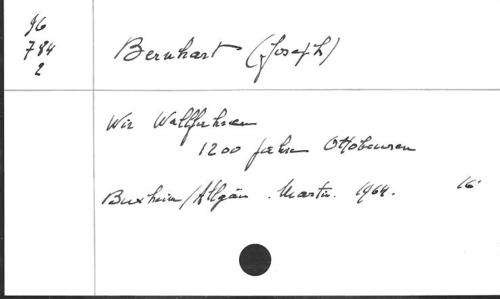 96
784
2
Bernhart (Joseph)
Wir Wallfahren
1200 Jahre Ottobeuren
Buxheim/Allgäu. Martin. 1964. 16°